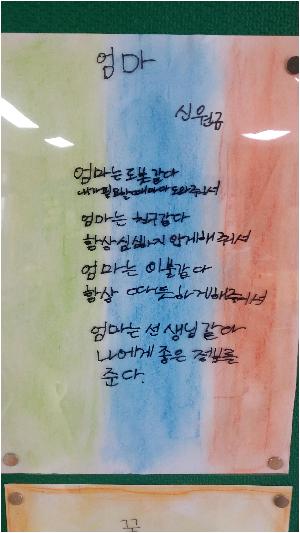 엄마
신원금
엄마는 로봇같다
내가 필요할때마다 도와주셔서
엄마는 친구같다
항상 심심하지 않게해 줘서
엄마는 이불같다
항상 따뜻하게해주셔서
엄마는 선생님 같아
나에게 좋은 정보를
준다.
꿈